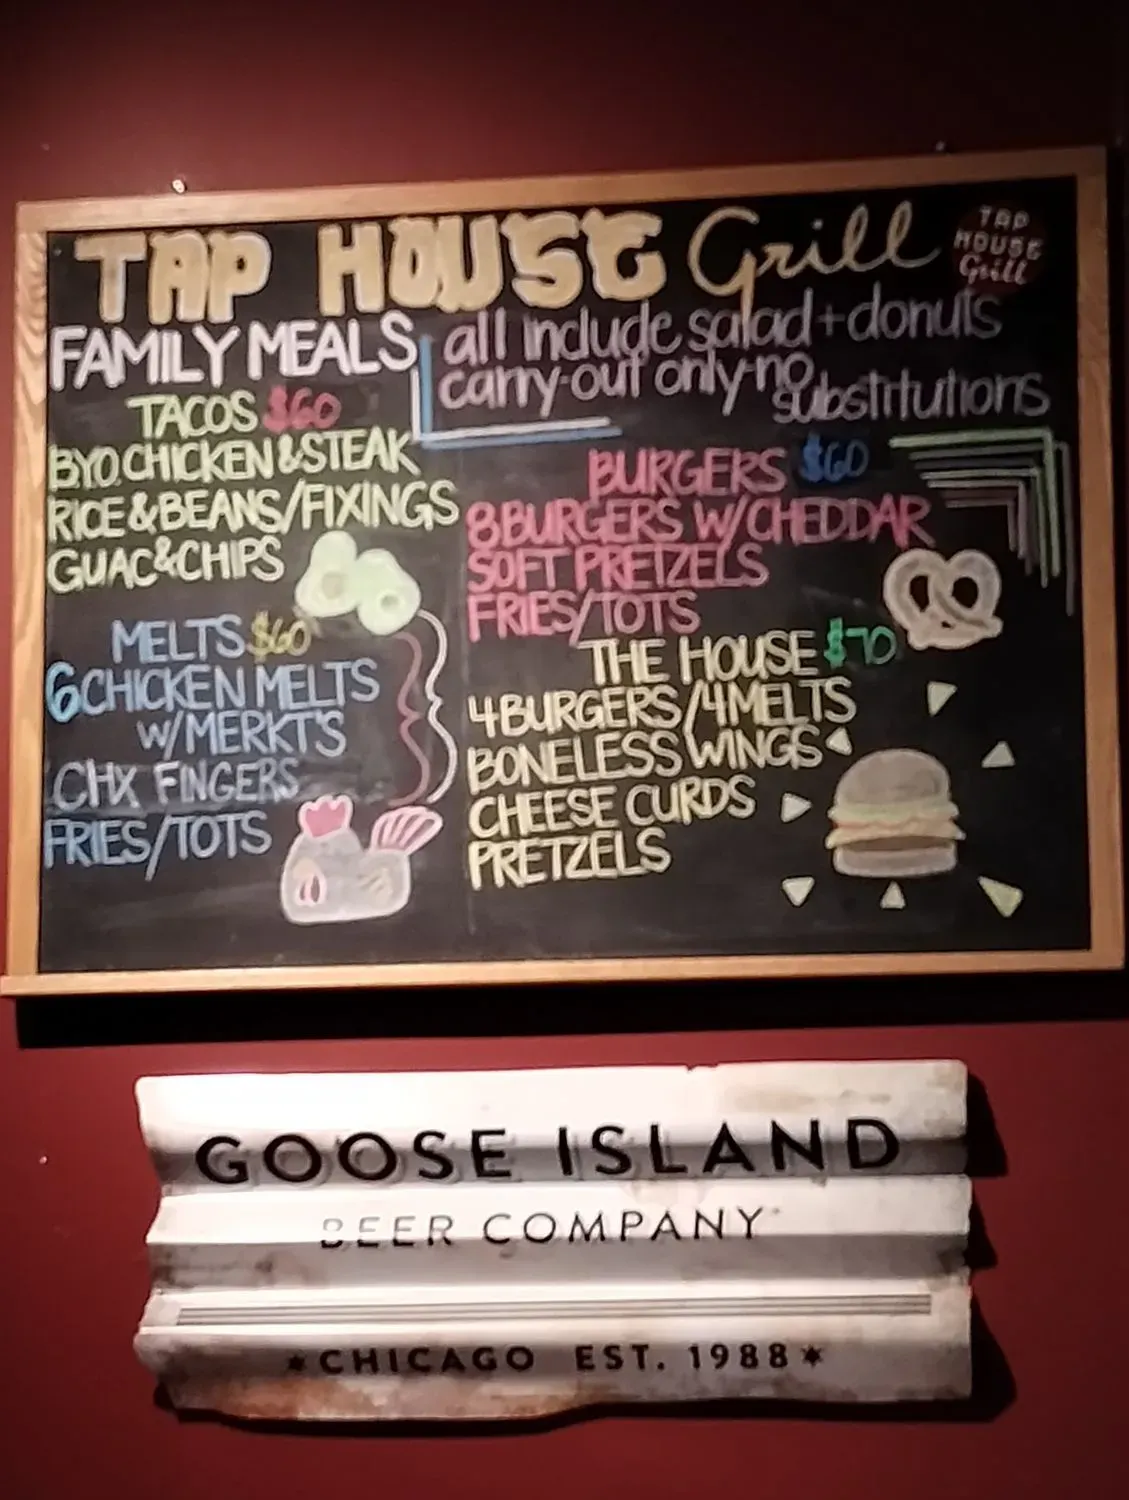 TAP HOUSE Grill
TAP
HOUSE
Grill
FAMILY MEALS
all include salad + donuts
carry-out only-no
substitutions
TACOS $60
B.Y.O. CHICKEN & STEAK
RICE & BEANS/FIXINGS
GUAC & CHIPS
MELTS $60
6 CHICKEN MELTS
W/MERKT'S
CHX FINGERS
FRIES/TOTS
BURGERS $60
8 BURGERS W/CHEDDAR
SOFT PRETZELS
FRIES/TOTS
THE HOUSE $70
4 BURGERS/4 MELTS
BONELESS WINGS
CHEESE CURDS
PRETZELS
GOOSE ISLAND
BEER COMPANY
*CHICAGO EST. 1988*